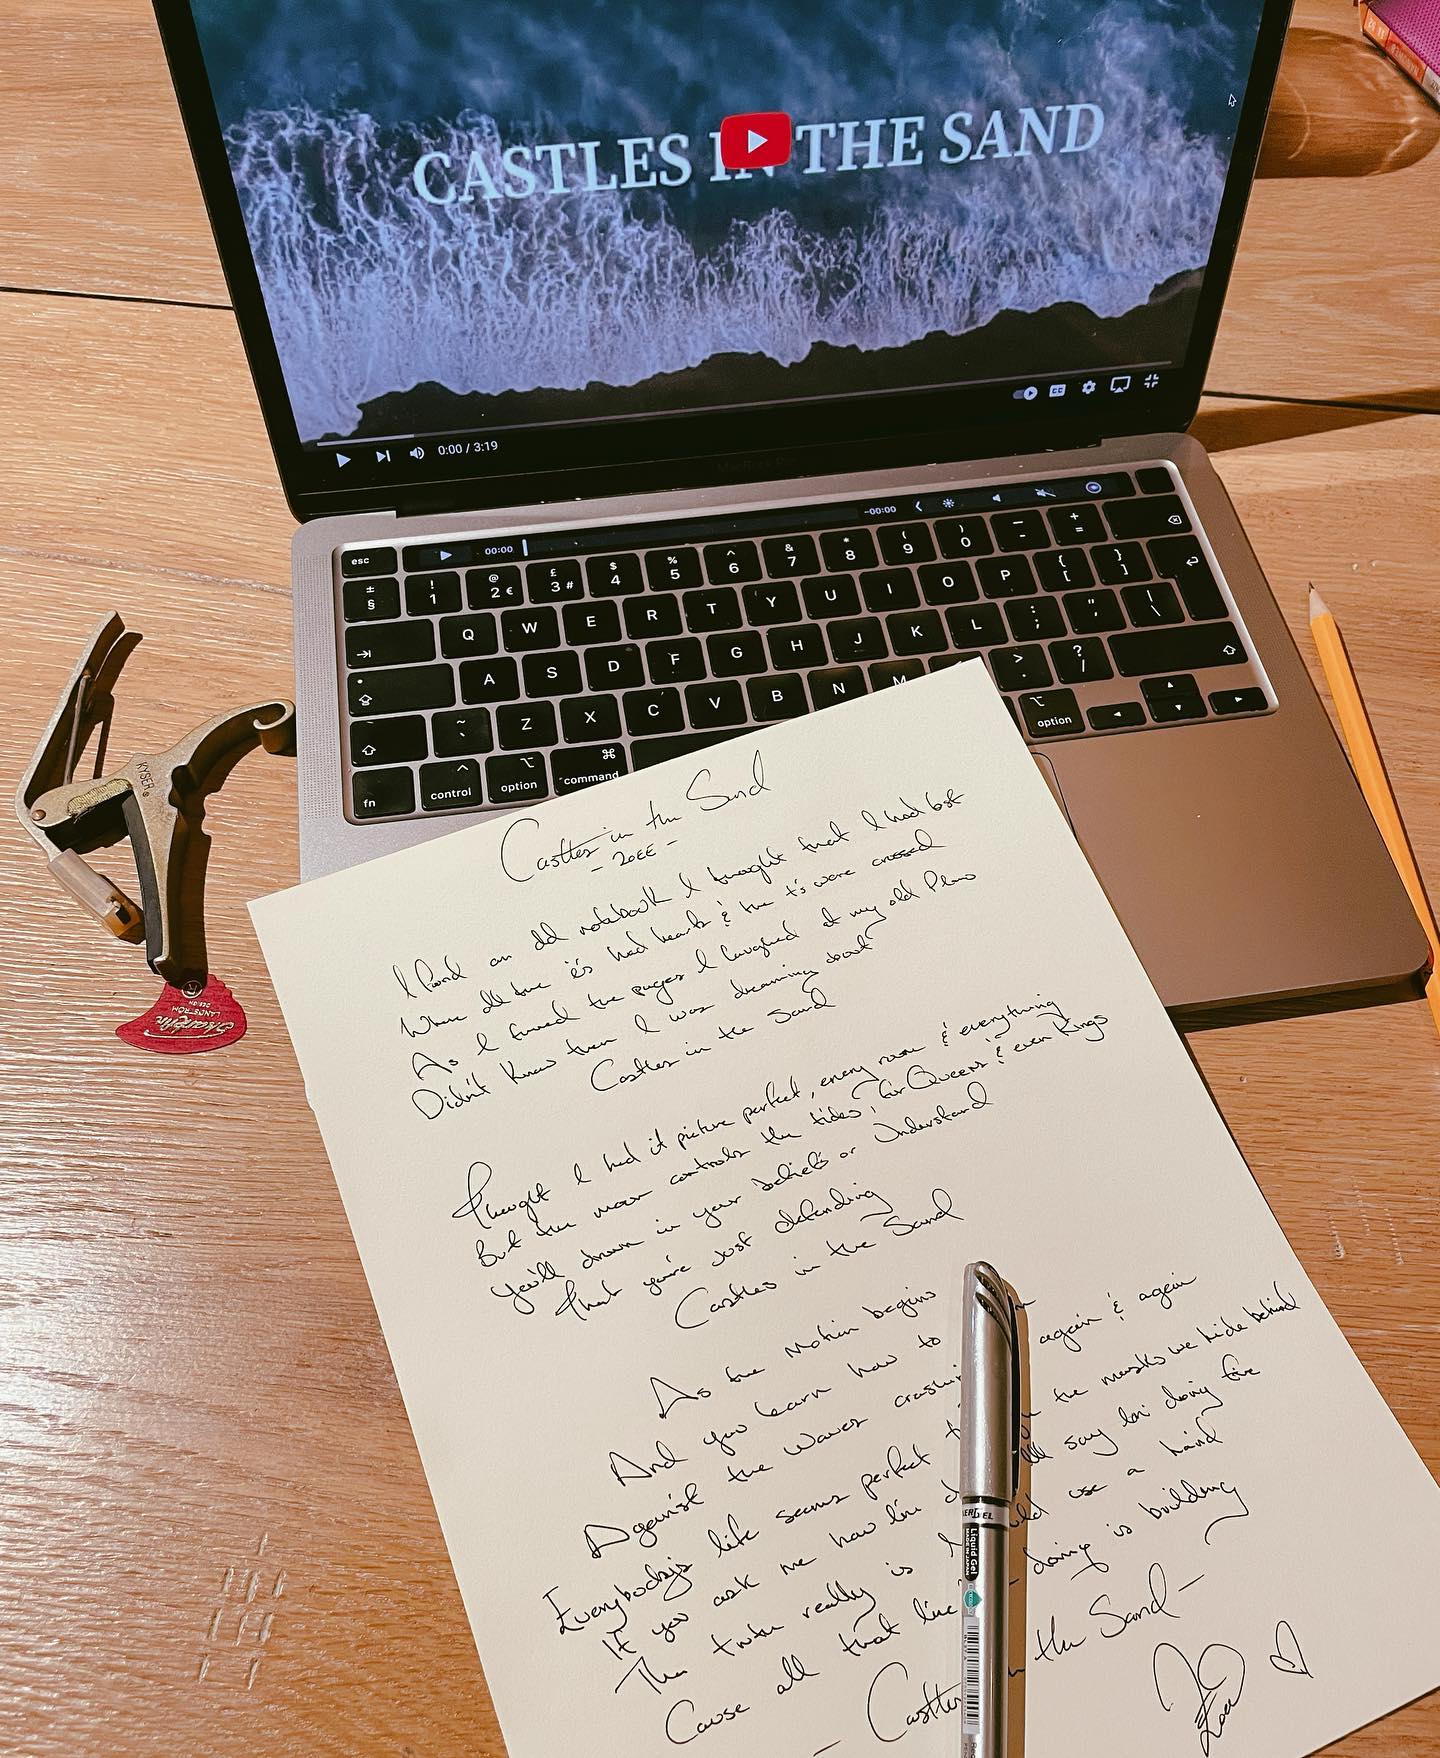 CASTLES IN THE SAND
0:00 / 3:19
CC
MacBook Pro
esc
00:00
-00:00
± § ! 1 @ 2 € £ 3 # $ 4 % 5 ^ 6 & 7 * 8 ( 9 ) 0 — - + =
Q W E R T Y U I O P { [ } ]
A S D F G H J K L : ; " ' | \
~ ` Z X C V B N M > . ? /
fn control option command option
KYSER®
Sharkfin
LANDSTROM
DESIGN
Castles in the Sand
- ZOEE -
I found an old notebook I thought that I had lost
Where all the i's had hearts & the t's were crossed
As I turned the pages I laughed at my old plans
Didn't know then I was dreaming about
Castles in the Sand
Thought I had it picture perfect, every room & everything
But the moon controls the tides, for Queens & even Kings
You'll drown in your beliefs or understand
that you're just defending
Castles in the Sand
As the motion begins
And you learn how to
Against the waves again & again
Everybody's life seems perfect the masks we hide behind
If you ask me how I'm say I'm doing fine
The truth really is I could use a hand
Cause all that I've doing is building
- Castles in the Sand -
ENERGEL
Liquid Gel
MADE IN JAPAN